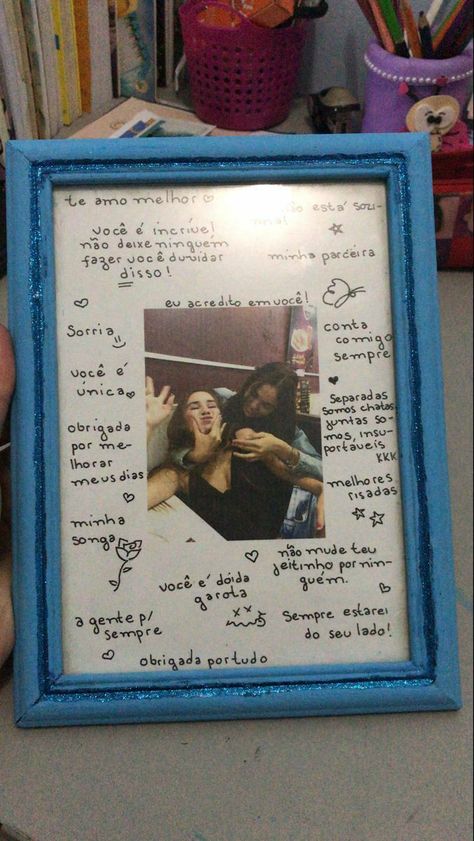 te amo melhor
está sozi-
nha!
você é incrível
não deixe ninguém
fazer você duvidar
disso!
minha parceira
eu acredito em você!
Sorria
conta
comigo
sempre
você é
única
Separadas
somos chatas
juntas so-
mos, insu-
portaveis
KKK
obrigada
por me-
lhorar
meus dias
melhores
risadas
minha
songa
não mude teu
jeitinho por nin-
guém.
você é dóida
garota
a gente p/
sempre
Sempre estarei
do seu lado!
obrigada por tudo